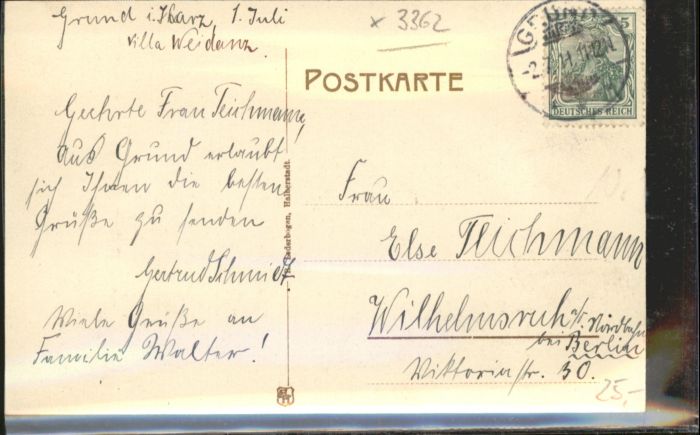 Grund i. Harz, 1. Juli
Villa Weidanz.
× 3362
POSTKARTE
5
DEUTSCHES REICH
Geehrte Frau Teichmann,
Aus Grund erlaubt
sich Ihnen die besten
Grüße zu senden
Gertrud Schmidt
Viele Grüße an
Familie Walter!
Lederbogen, Halberstadt.
Frau
Else Teichmann
Wilhelmsruh a/d. Nordbahn
bei Berlin
Viktoriastr. 30.
25,-